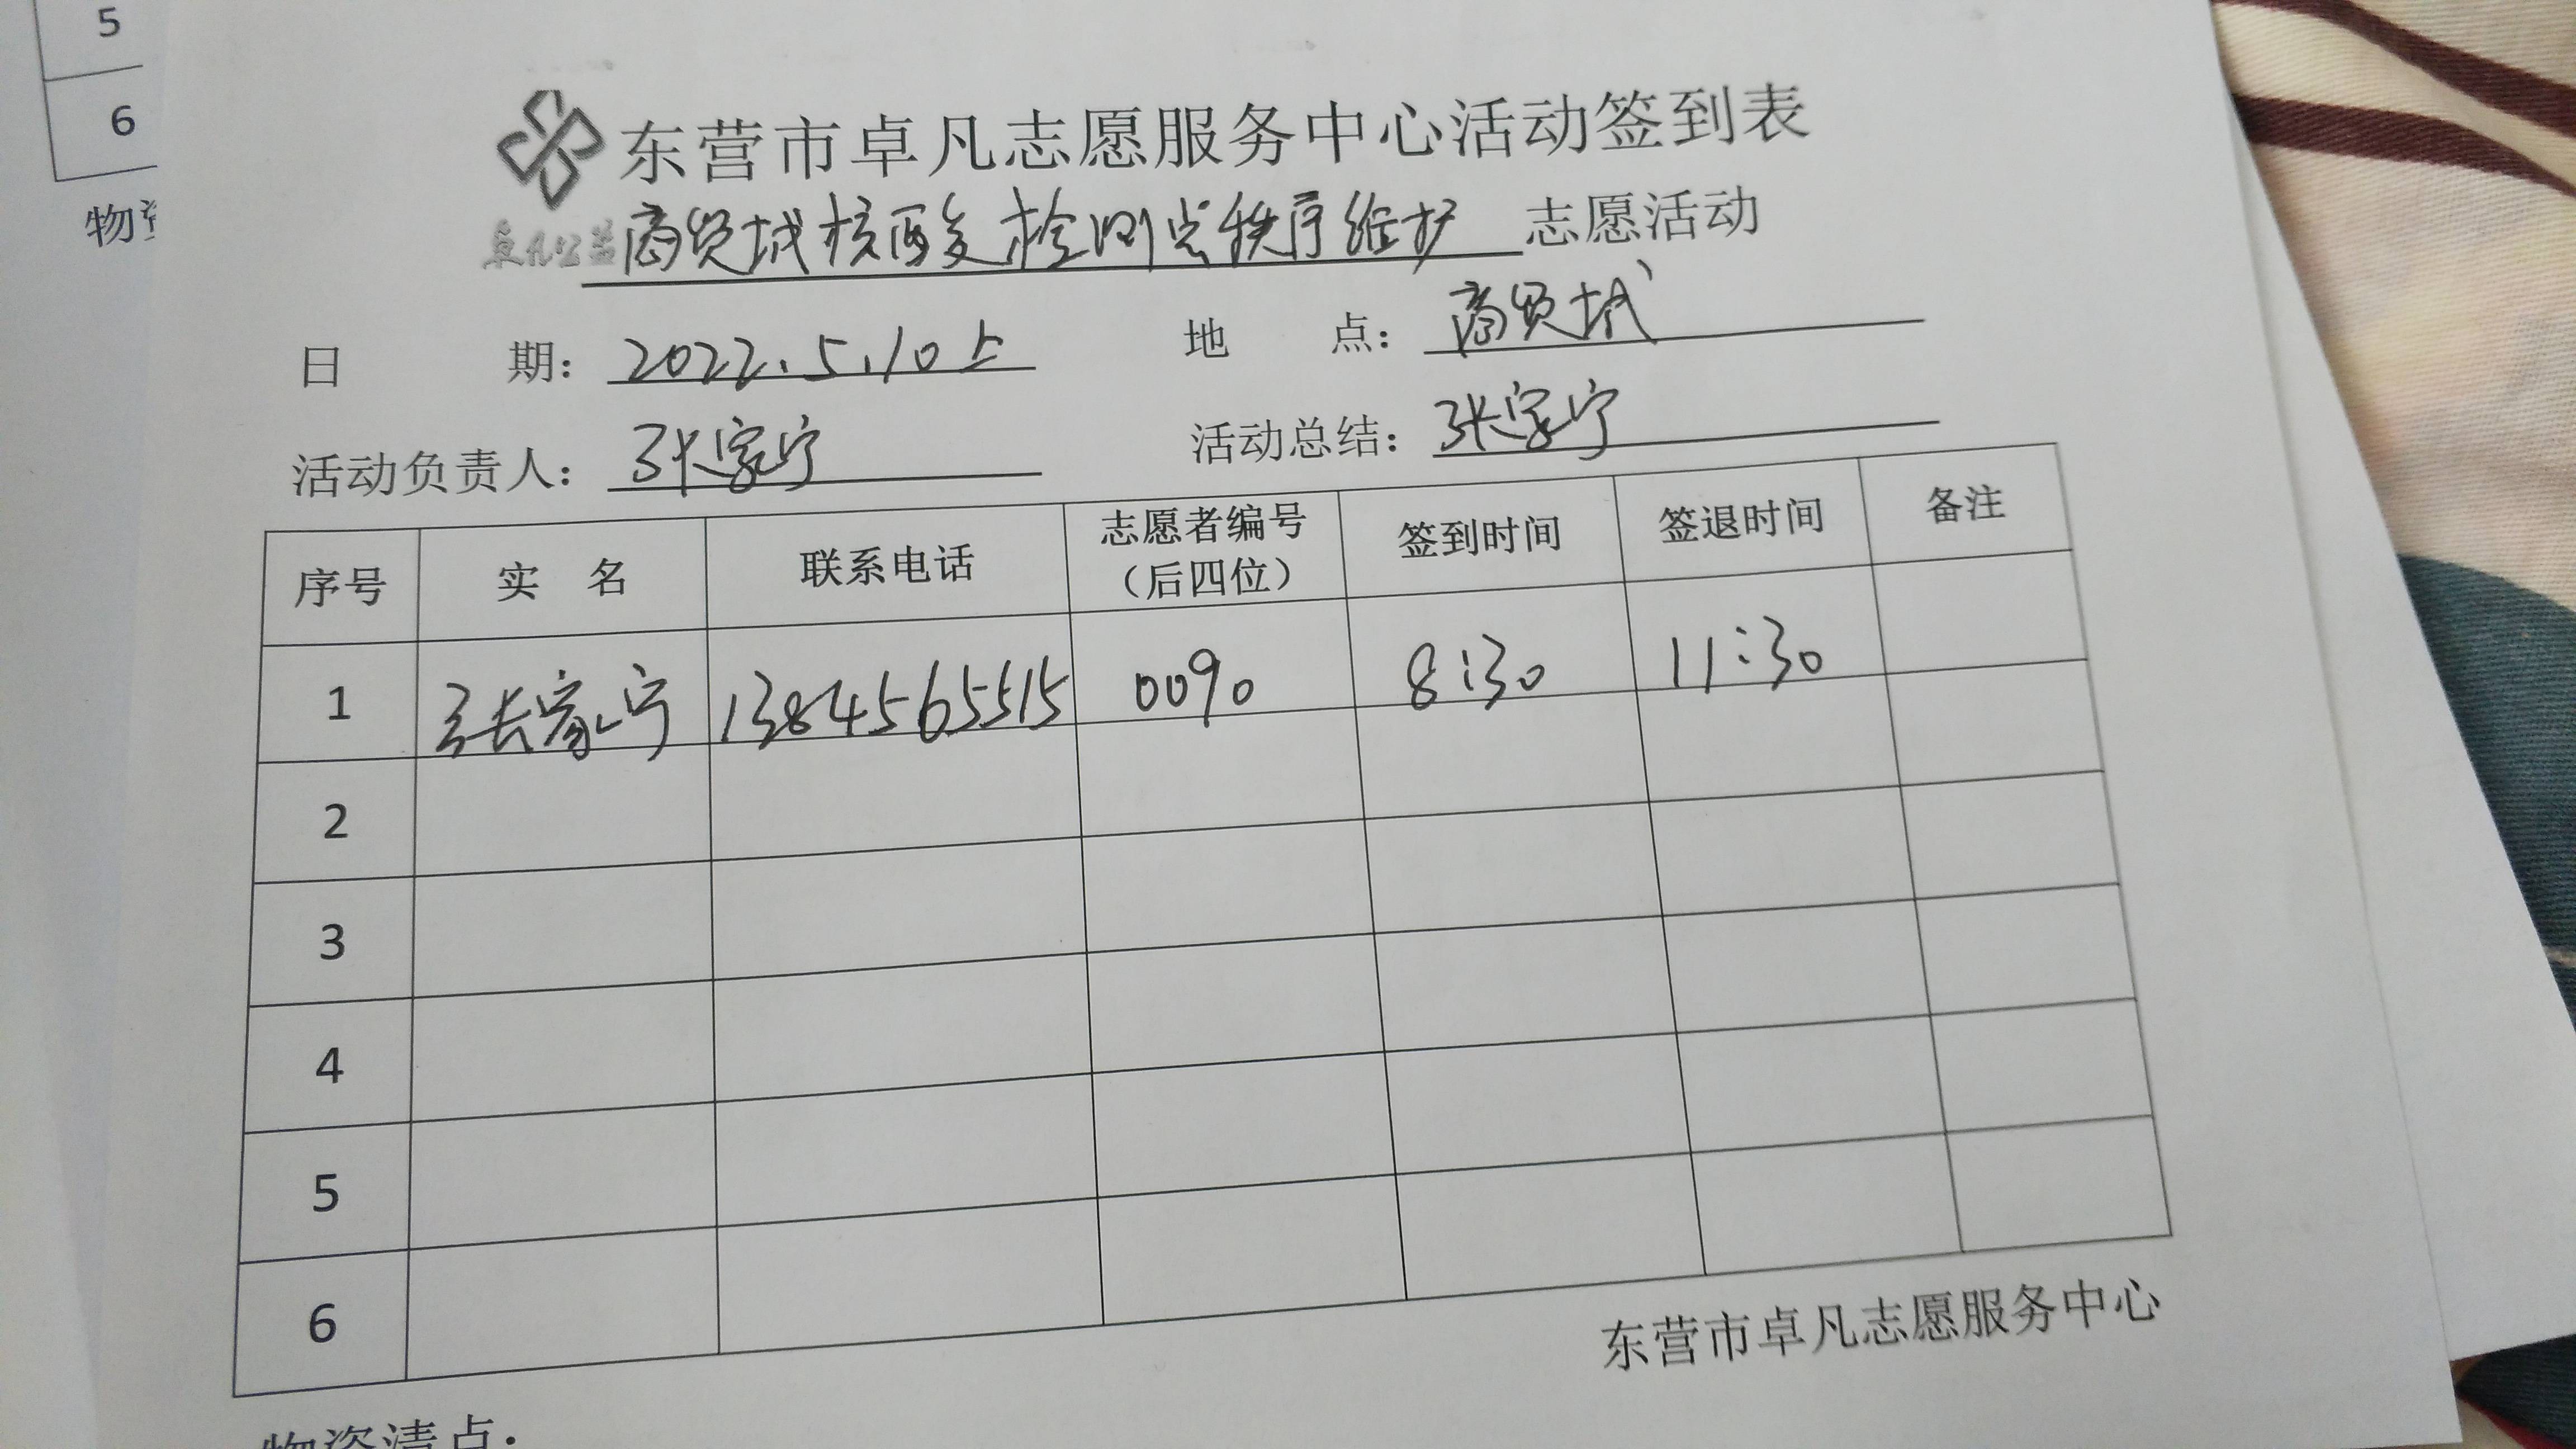 5
6
物资
东营市卓凡志愿服务中心活动签到表
卓凡公益
商贸城核酸检测点秩序维护 志愿活动
日 期： 2022.5.10上 地 点： 商贸城
活动负责人： 张家宁 活动总结： 张家宁
序号 实 名 联系电话 志愿者编号（后四位） 签到时间 签退时间 备注
1 张家宁 13845655515 0090 8:30 11:30
2
3
4
5
6
东营市卓凡志愿服务中心
物资清点：